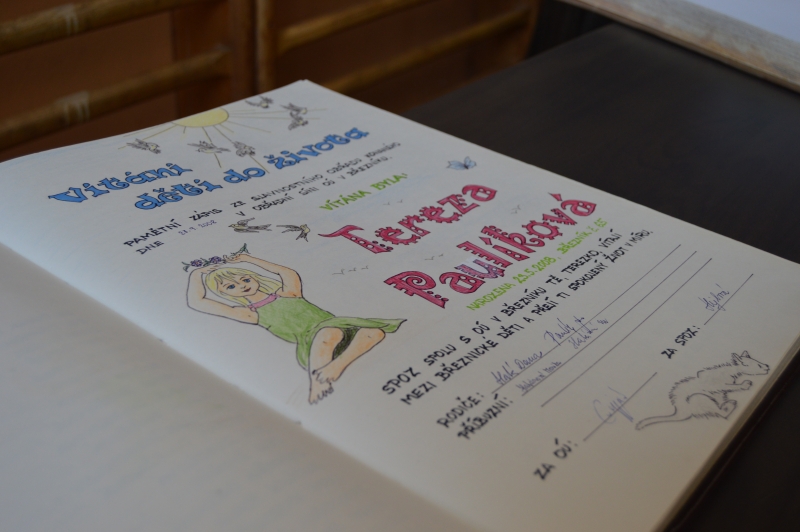 Vítání
dětí do života
PAMĚTNÍ ZÁPIS ZE SLAVNOSTNÍHO OBŘADU KONANÉHO
DNE V OBŘADNÍ SÍNI OÚ V BŘEZNÍKU.
VÍTÁNA BYLA:
Tereza
Paulíková
NAROZENA 2008, BŘEZNÍK Č.
SPOZ SPOLU S OÚ V BŘEZNÍKU TĚ TEREZKO, VÍTAJÍ
MEZI BŘEZNICKÉ DĚTI A PŘEJÍ TI SPOKOJENÝ ŽIVOT V MÍRU.
RODIČE:
PŘÍBUZNÍ:
ZA SPOZ:
ZA OÚ: